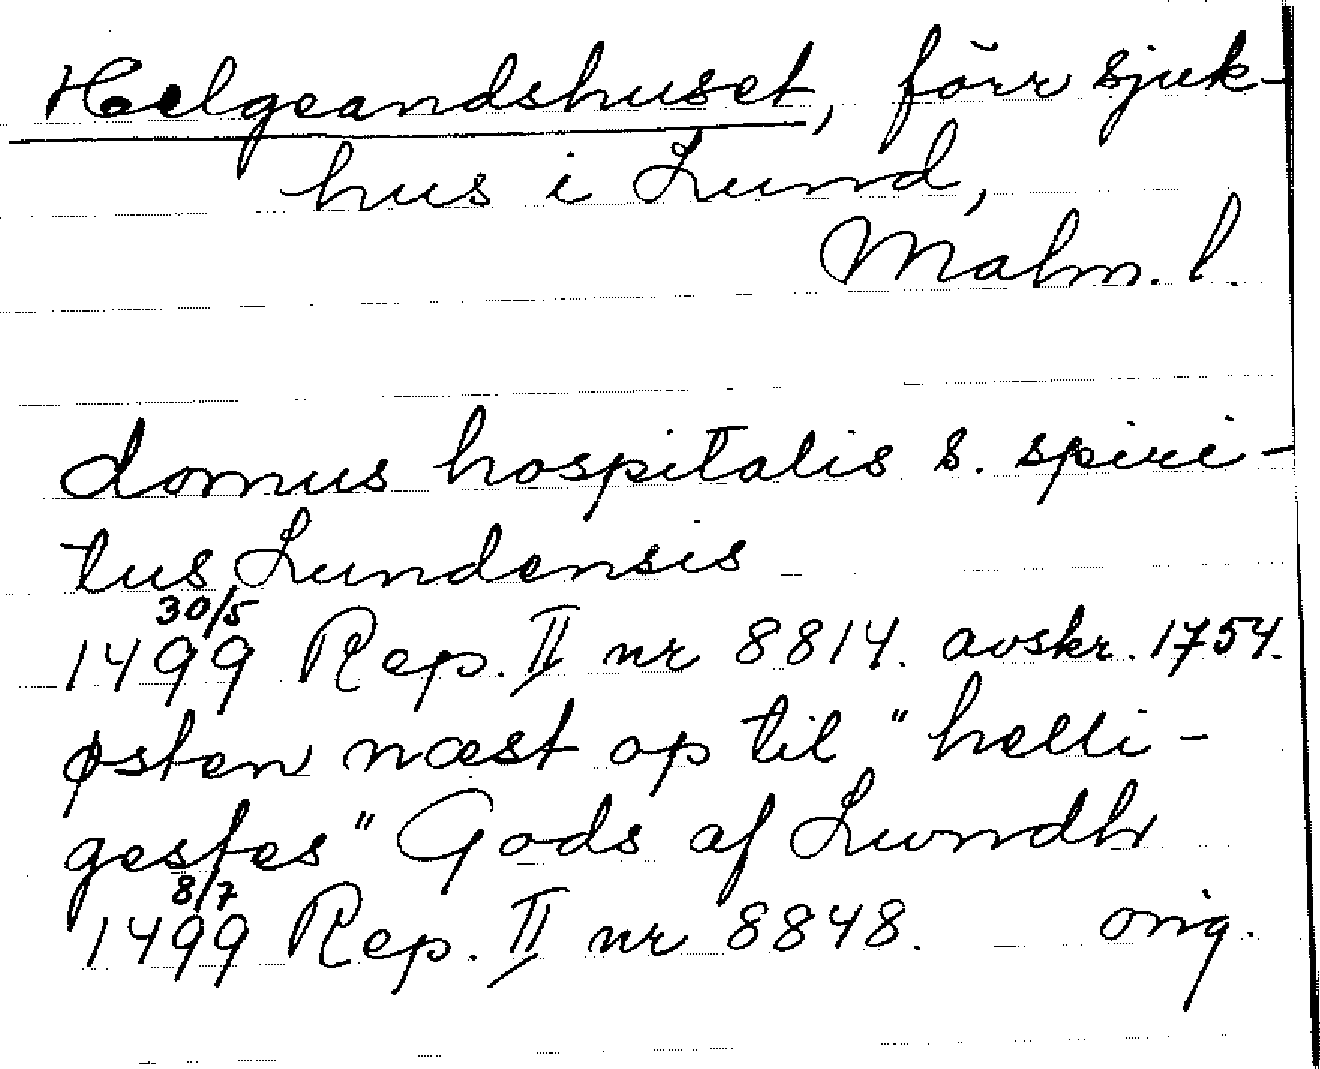 Helgeandshuset, förr sjuk-
hus i Lund,
Malm. l.
domus hospitalis s. spiri-
tus Lundensis
30/5
1499 Rep. II nr 8814. avskr. 1754.
østen næst op til "helli-
gestes" Gods af Lundh
8/7
1499 Rep. II nr 8848. orig.